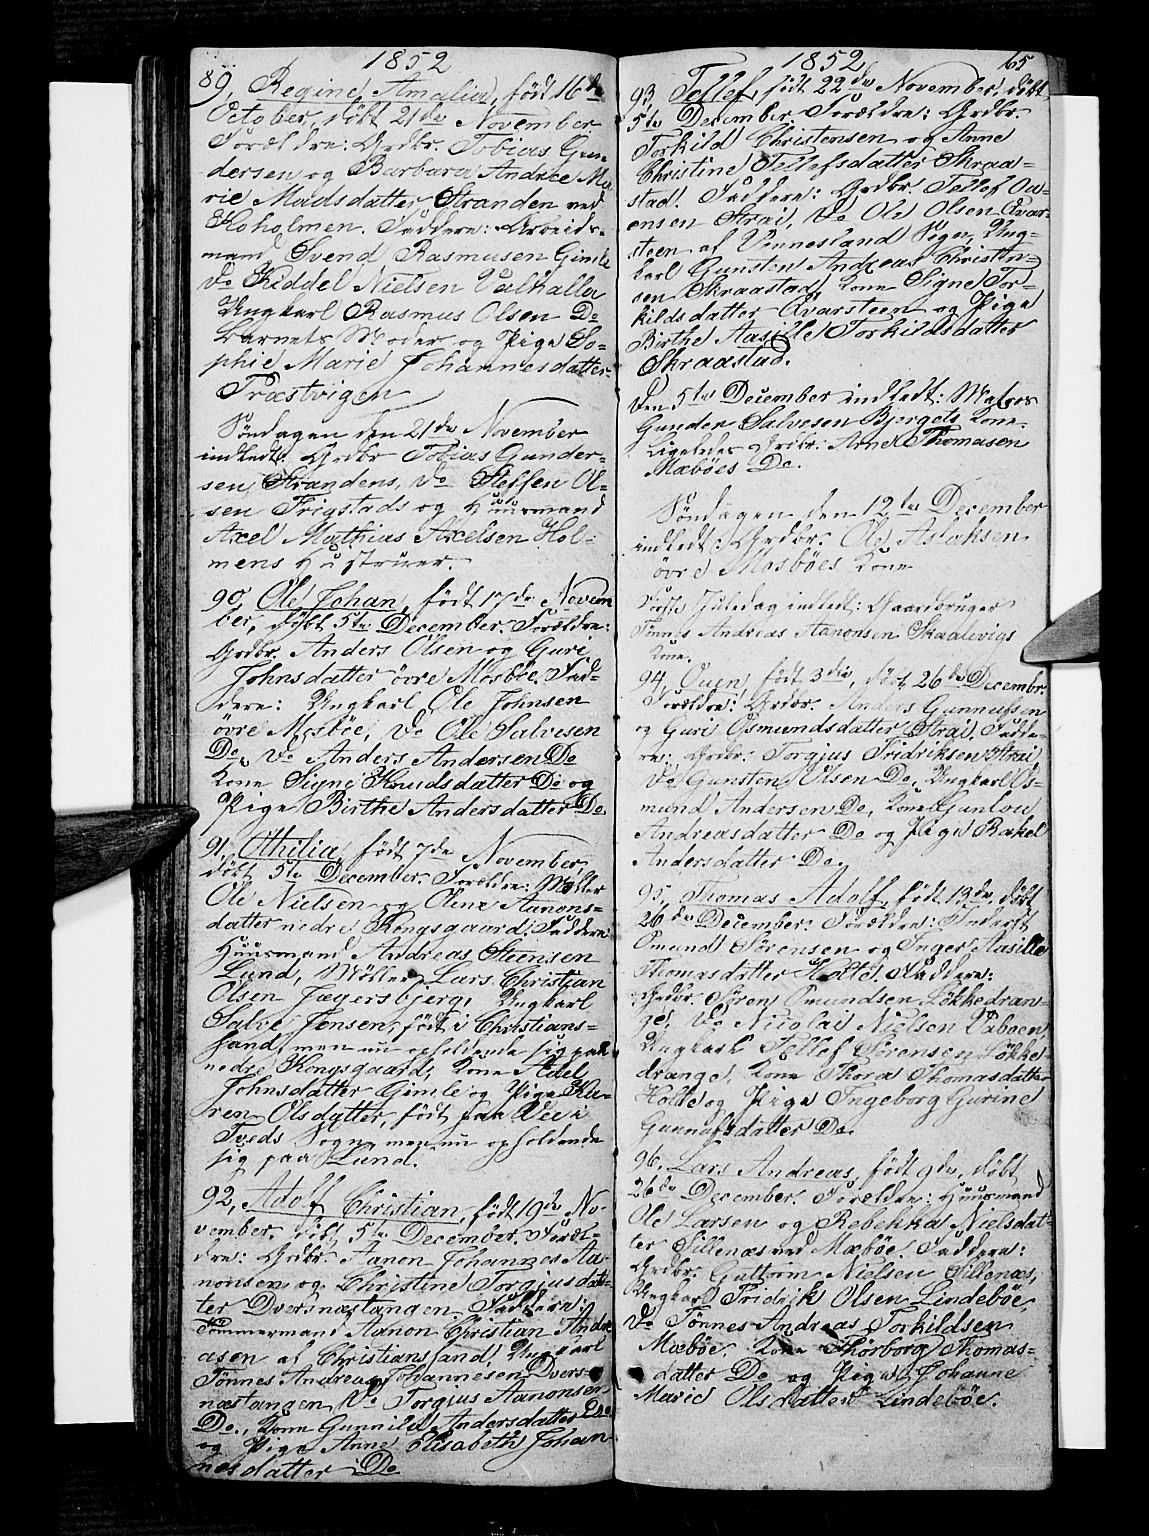 1852
89, Regine Amalia, født 16de
October, døbt 21de November
Forældre: Grdbr. Tobias Gun-
dersen og Barbara Andrea Ma-
rie Madsdatter Stranden ved
Hoholmen. Faddere: Arbeids-
mand Svend Rasmusen Gimle
Do Kiddel Nielsen Valhalla
Ungkarl Rasmus Olsen Do
Barnets Moder og Pige So-
phie Marie Johannesdatter
Træstvigen
Søndagen den 21de November
indledt: Grdbr Tobias Gunder-
sen Strandens, Do Steffen Ol-
sen Frigstads og Huusmand
Axel Mathias Axelsen Hol-
mens Hustruer.
90, Ole Johan, født 17de Novem
ber, døbt 5te December. Forældre:
Grdbr. Anders Olsen og Guri
Johnsdatter øvre Mosbøe. Fad-
dere: Ungkarl Ole Johnsen
øvre Mosbøe, Do Ole Salvesen
Do, Do Anders Andersen Do
Kone Signe Knudsdatter Do og
Pige Birthe Andersdatter Do
91, Othilia, født 7de November,
døbt 5te December. Forældre: Møller
Ole Nielsen og Oline Aanons-
datter nedre Kongsgaard. Faddere:
Huusmand Andreas Steensen
Lund, Møller Lars Christian
Olsen Jægersbjerg, Ungkarl
Salve Jensen, født i Christians-
sand, men nu opholdende sig paa
nedre Kongsgaard, Kone Adel
Johnsdatter Gimle og Pige Ka-
ren Olsdatter, født paa Vee i
Tveds Sogn, men nu opholdende
sig paa Lund.
92, Adolf Christian, født 19de No-
vember, døbt 5te December. Foræl-
dre: Grdbr. Aanon Johannes Aa-
nonsen og Christine Torgiusdat-
ter Dversnæstangen. Faddere:
Tømmermand Aanon Christian Andre
asen af Christianssand, Ungkarl
Tønnes Andreas Johannesen Dvers-
næstangen Do Torgius Aanonsen
Do., Kone Gunnild Andersdatter Do
og Pige Anne Elisabeth Johan-
nesdatter Do
1852
65
93, Tellef, født 22de November, døbt
5te December. Forældre: Grdbr.
Torkild Christensen og Anne
Christine Tellefsdatter Skraa-
stad. Faddere: Grdbr Tellef Aa-
ensen Strai, Do Ole Olsen Qvar-
steen af Vennesland Sogn, Ung-
karl Gunsten Andreas Christen-
sen Skraastad, Kone Signe Tor-
kildsdatter Qvarsteen og Pige
Birthe Aasille Torkildsdatter
Skraastad.
Den 5te December indledt: Matros
Gunder Salvesen Bjergets Kone.
Ligeledes Grdbr: Arne Thomasen
Mæbøes Do.
Søndagen den 12te December
indledt: Grdbr. Ole Aslaksen
øvre Mosbøes Kone
Første Juledag indledt: Gaardbruger
Tønnes Andreas Aanonsen Skaalevigs
Kone.
94, Ouen, født 3die, døbt 26de Decembr.
Forældre: Grdbr. Anders Gunnufsen
og Guri Osmundsdatter Strai. Fadde-
re: Grdbr. Torgius Fridriksen Strai
Do Gunsten Olsen Do, Ungkarl Os-
mund Andersen Do, Kone Gunlou
Andreasdatter Do og Pige Rakel
Andersdatter Do.
95, Thomas Adolf, født 13de, døbt
26de December. Forældre: Inderst
Omund Sørensen og Inger Aasille
Thomasdatter Holte. Faddere:
Grdbr. Søren Omundsen Løkkedran-
ge, Do Nicolai Nielsen Vaboen,
Ungkarl Tellef Sørensen Løkke-
drange, Kone Thora Thomasdatter
Holte og Pige Ingeborg Gurine
Gunnufsdatter Do.
96, Lars Andreas, født 9de, døbt
26de December. Forældre: Huusmand
Ole Larsen og Rebekka Nielsdat-
ter Sillenæs ved Mæbøe. Faddere:
Grdbr. Guttorm Nielsen Sillenæs,
Ungkarl Fridrik Olsen Lindebøe,
Do Tønnes Andreas Torkildsen
Mæbøe, Kone Thorborg Thomas-
datter Do og Pige Johanne
Marie Olsdatter Lindebøe.